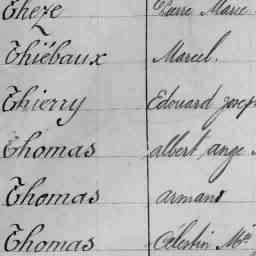 Theze Pierre Marie
Thiébaux Marcel.
Thierry Edouard Joseph
Thomas albert ange
Thomas armand
Thomas Célestin Mie